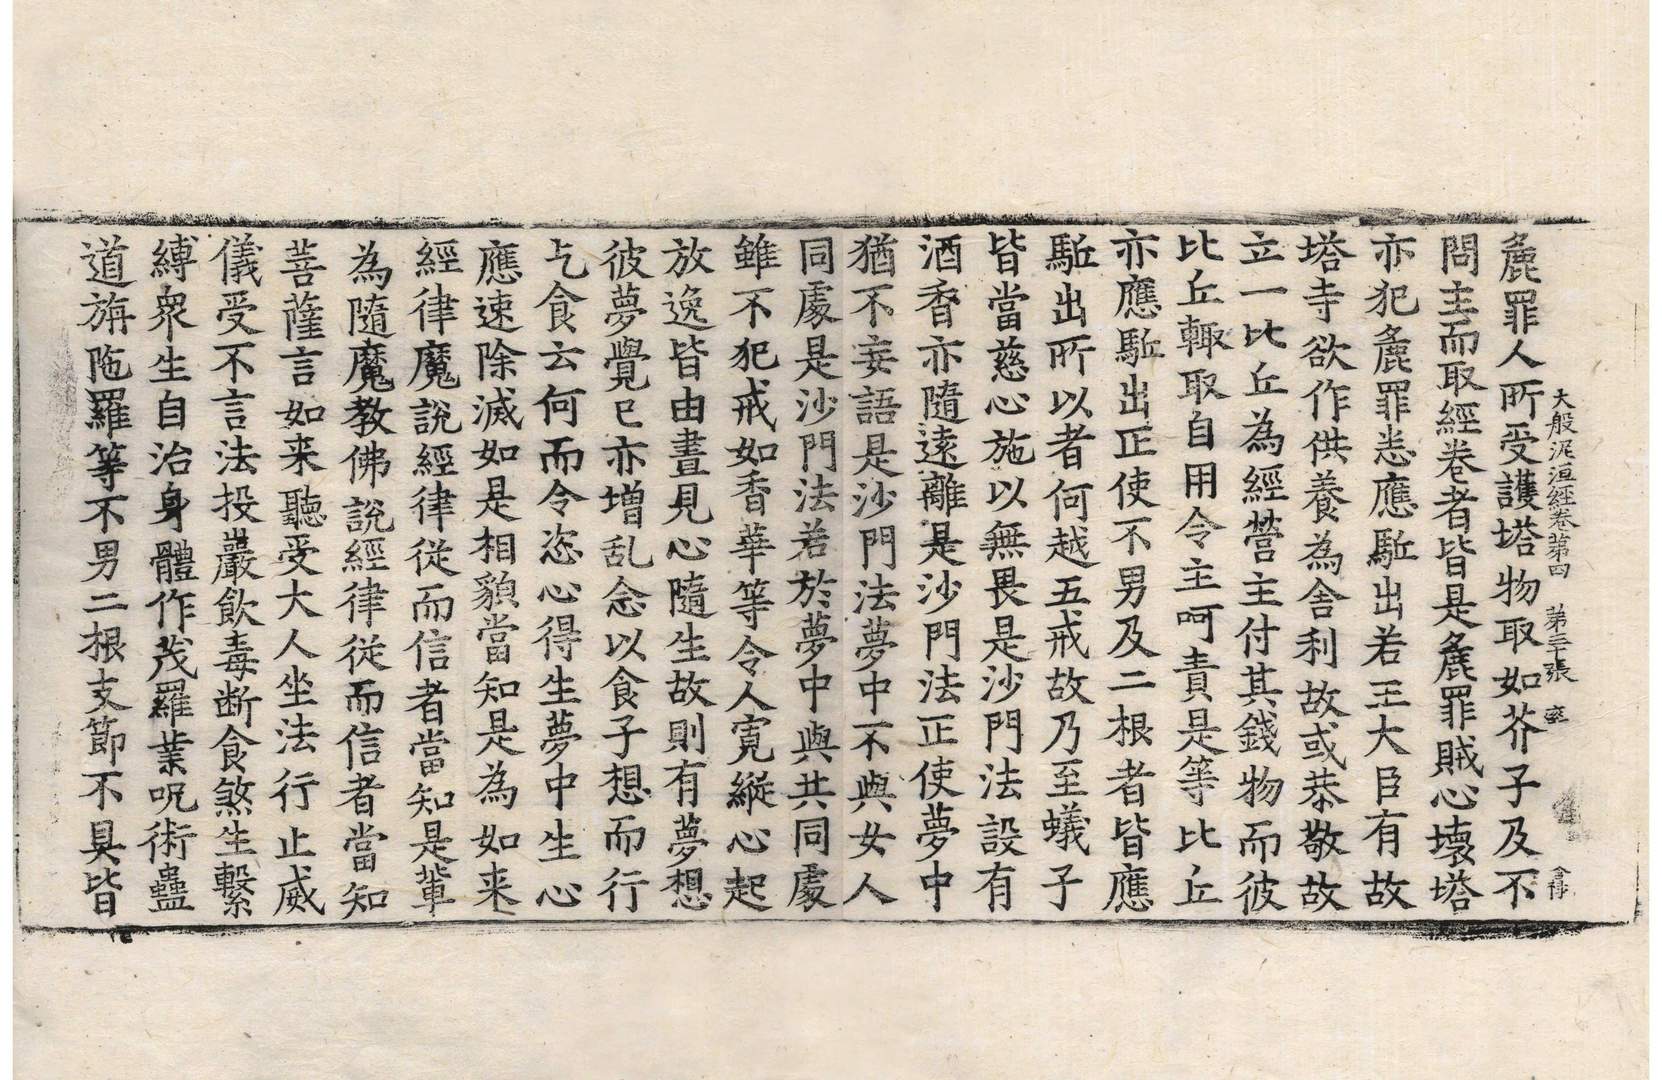 大般泥洹經卷第四　第三十張
麁罪人所受護塔物取如芥子及不
問主而取經卷者皆是麁罪賊心壞塔
亦犯麁罪悉應駈出若王大臣有故
塔寺欲作供養為舍利故或恭敬故
立一比丘為經營主付其錢物而彼
比丘輙取自用令主呵責是等比丘
亦應駈出正使不男及二根者皆應
駈出所以者何越五戒故乃至蟻子
皆當慈心施以無畏是沙門法設有
酒香亦隨遠離是沙門法正使夢中
猶不妄語是沙門法夢中不與女人
同處是沙門法若於夢中與共同處
雖不犯戒如香華等令人寬縱心起
放逸皆由晝見心隨生故則有夢想
彼夢覺已亦增乱念以食子想而行
乞食云何而令恣心得生夢中生心
應速除滅如是相貌當知是為如来
經律魔說經律從而信者當知是輩
為隨魔教佛說經律從而信者當知
菩薩言如来聽受大人坐法行止威
儀受不言法投巖飲毒断食煞生繫
縛眾生自治身體作茂羅業呪術蠱
道旃陁羅等不男二根支節不具皆